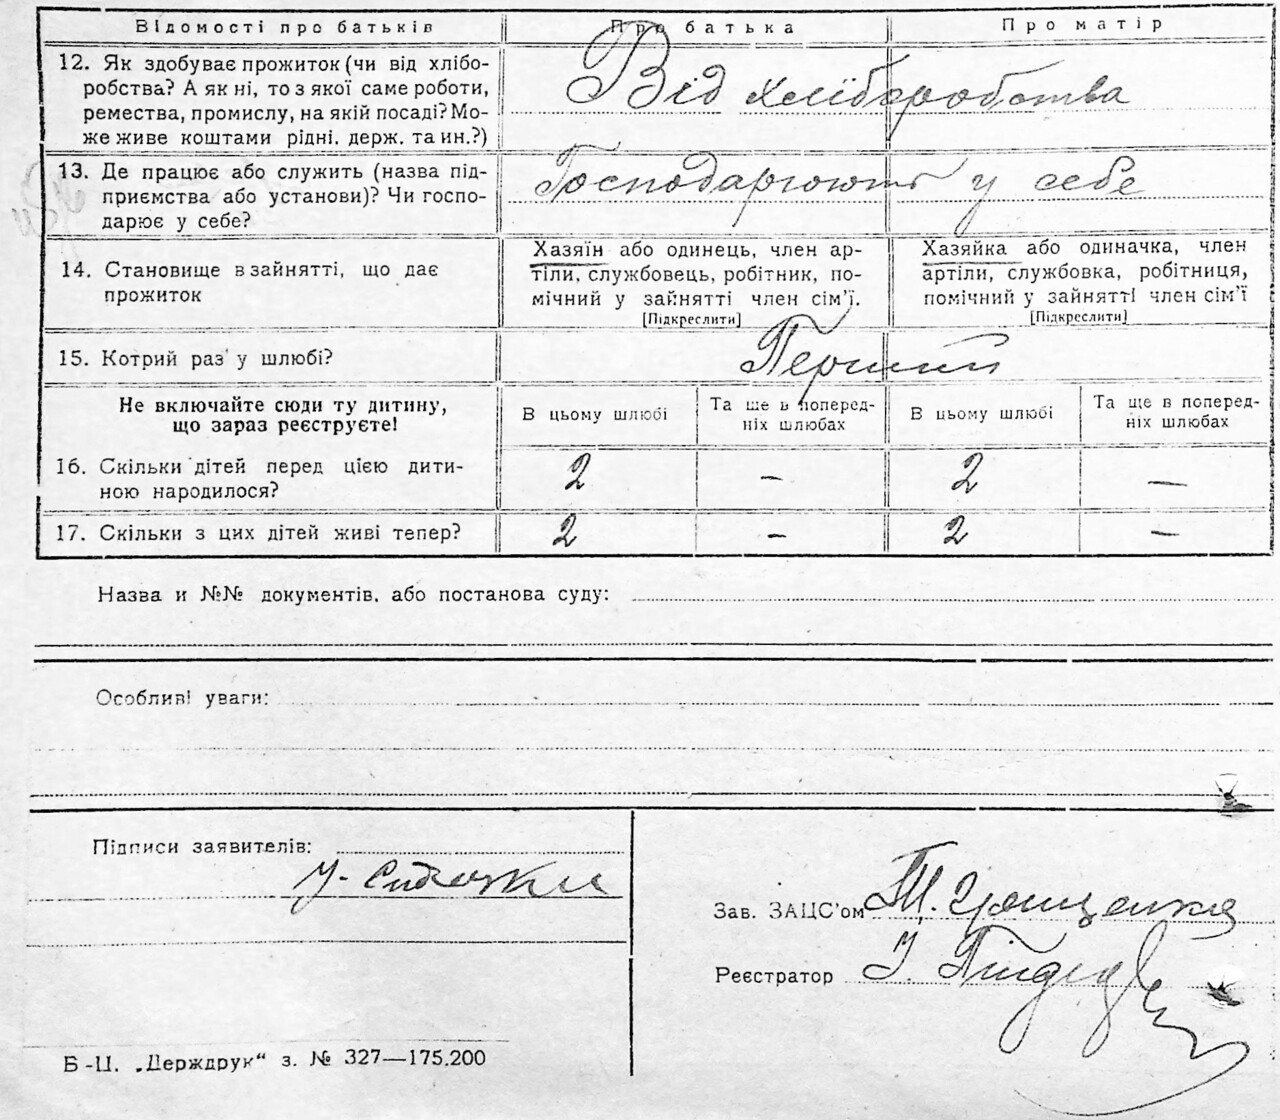 Відомості про батьків Про батька Про матір
12. Як здобуває прожиток (чи від хлібо-
робства? А як ні, то з якої саме роботи,
ремества, промислу, на якій посаді? Мо-
же живе коштами рідні, держ. та ин.?)
Від хліборобства
13. Де працює або служить (назва під-
приємства або установи)? Чи госпо-
дарює у себе?
Господарюють у себе
14. Становище в зайнятті, що дає
прожиток
Хазяїн або одинець, член ар-
тіли, службовець, робітник, по-
мічний у зайнятті член сім'ї.
[Підкреслити]
Хазяйка або одиначка, член
артіли, службовка, робітниця,
помічний у зайнятті член сім'ї
[Підкреслити]
15. Котрий раз у шлюбі?
Перший
Не включайте сюди ту дитину,
що зараз реєструєте!
В цьому шлюбі
Та ще в поперед-
ніх шлюбах
В цьому шлюбі
Та ще в поперед-
ніх шлюбах
16. Скільки дітей перед цією дити-
ною народилося?
2 – 2 –
17. Скільки з цих дітей живі тепер? 2 – 2 –
Назва и №№ документів, або постанова суду:
Особливі уваги:
Підписи заявителів:
Зав. ЗАЦС'ом
Реєстратор І.
Б-Ц. „Держдрук“ з. № 327—175.200